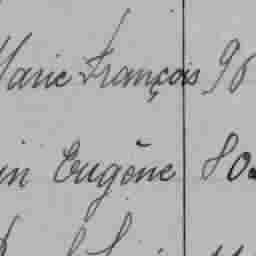 Marie François 96
in Eugène 80